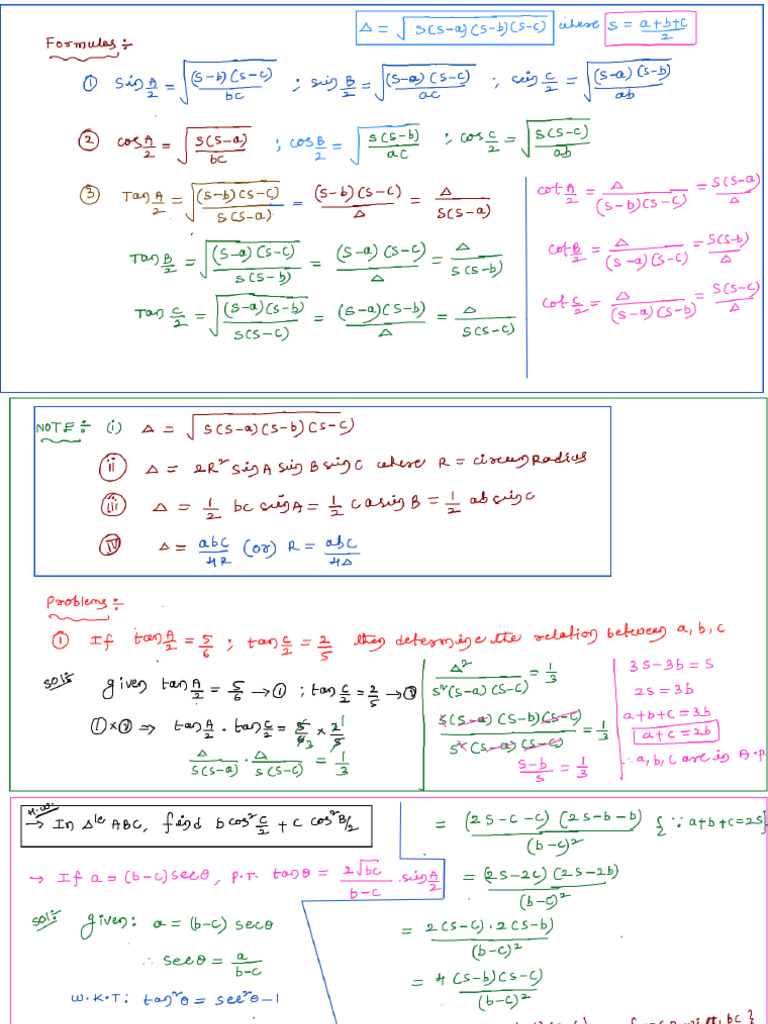 Δ = √(s(s-a)(s-b)(s-c)) where s = a+b+c/2
Formulas :-
① sin A/2 = √((s-b)(s-c)/bc) ; sin B/2 = √((s-a)(s-c)/ac) ; sin C/2 = √((s-a)(s-b)/ab)
② cos A/2 = √(s(s-a)/bc) ; cos B/2 = √(s(s-b)/ac) ; cos C/2 = √(s(s-c)/ab)
③ Tan A/2 = √((s-b)(s-c)/s(s-a)) = (s-b)(s-c)/Δ = Δ/s(s-a)
Tan B/2 = √((s-a)(s-c)/s(s-b)) = (s-a)(s-c)/Δ = Δ/s(s-b)
Tan C/2 = √((s-a)(s-b)/s(s-c)) = (s-a)(s-b)/Δ = Δ/s(s-c)
cot A/2 = Δ/(s-b)(s-c) = s(s-a)/Δ
cot B/2 = Δ/(s-a)(s-c) = s(s-b)/Δ
cot C/2 = Δ/(s-a)(s-b) = s(s-c)/Δ
NOTE :- (i) Δ = √(s(s-a)(s-b)(s-c))
(ii) Δ = 2R² sin A sin B sin C where R = circum Radius
(iii) Δ = 1/2 bc sin A = 1/2 ca sin B = 1/2 ab sin C
(iv) Δ = abc/4R (or) R = abc/4Δ
Problems :-
① If tan A/2 = 5/6 ; tan C/2 = 2/5 then determine the relation between a, b, c
Sol:- given tan A/2 = 5/6 → ① ; tan C/2 = 2/5 → ②
① × ② ⇒ tan A/2 . tan C/2 = 5/6 3 × 2 1/5
Δ/s(s-a) . Δ/s(s-c) = 1/3
Δ²/s²(s-a)(s-c) = 1/3
s(s-a)(s-b)(s-c)/s²(s-a)(s-c) = 1/3
s-b/s = 1/3
3s-3b = s
2s = 3b
a+b+c = 3b
a+c = 2b
∴ a, b, c are in A.p
H.W.
→ In Δle ABC, find b cos² C/2 + c cos² B/2
→ If a = (b-c) secθ, P.T. tanθ = 2√bc/b-c . sin A/2
Sol:- given: a = (b-c) secθ
∴ secθ = a/b-c
W.K.T: tan²θ = sec²θ-1
= (2s-c-c)(2s-b-b)/(b-c)² {∵ a+b+c=2s}
= (2s-2c)(2s-2b)/(b-c)²
= 2(s-c).2(s-b)/(b-c)²
= 4(s-b)(s-c)/(b-c)²